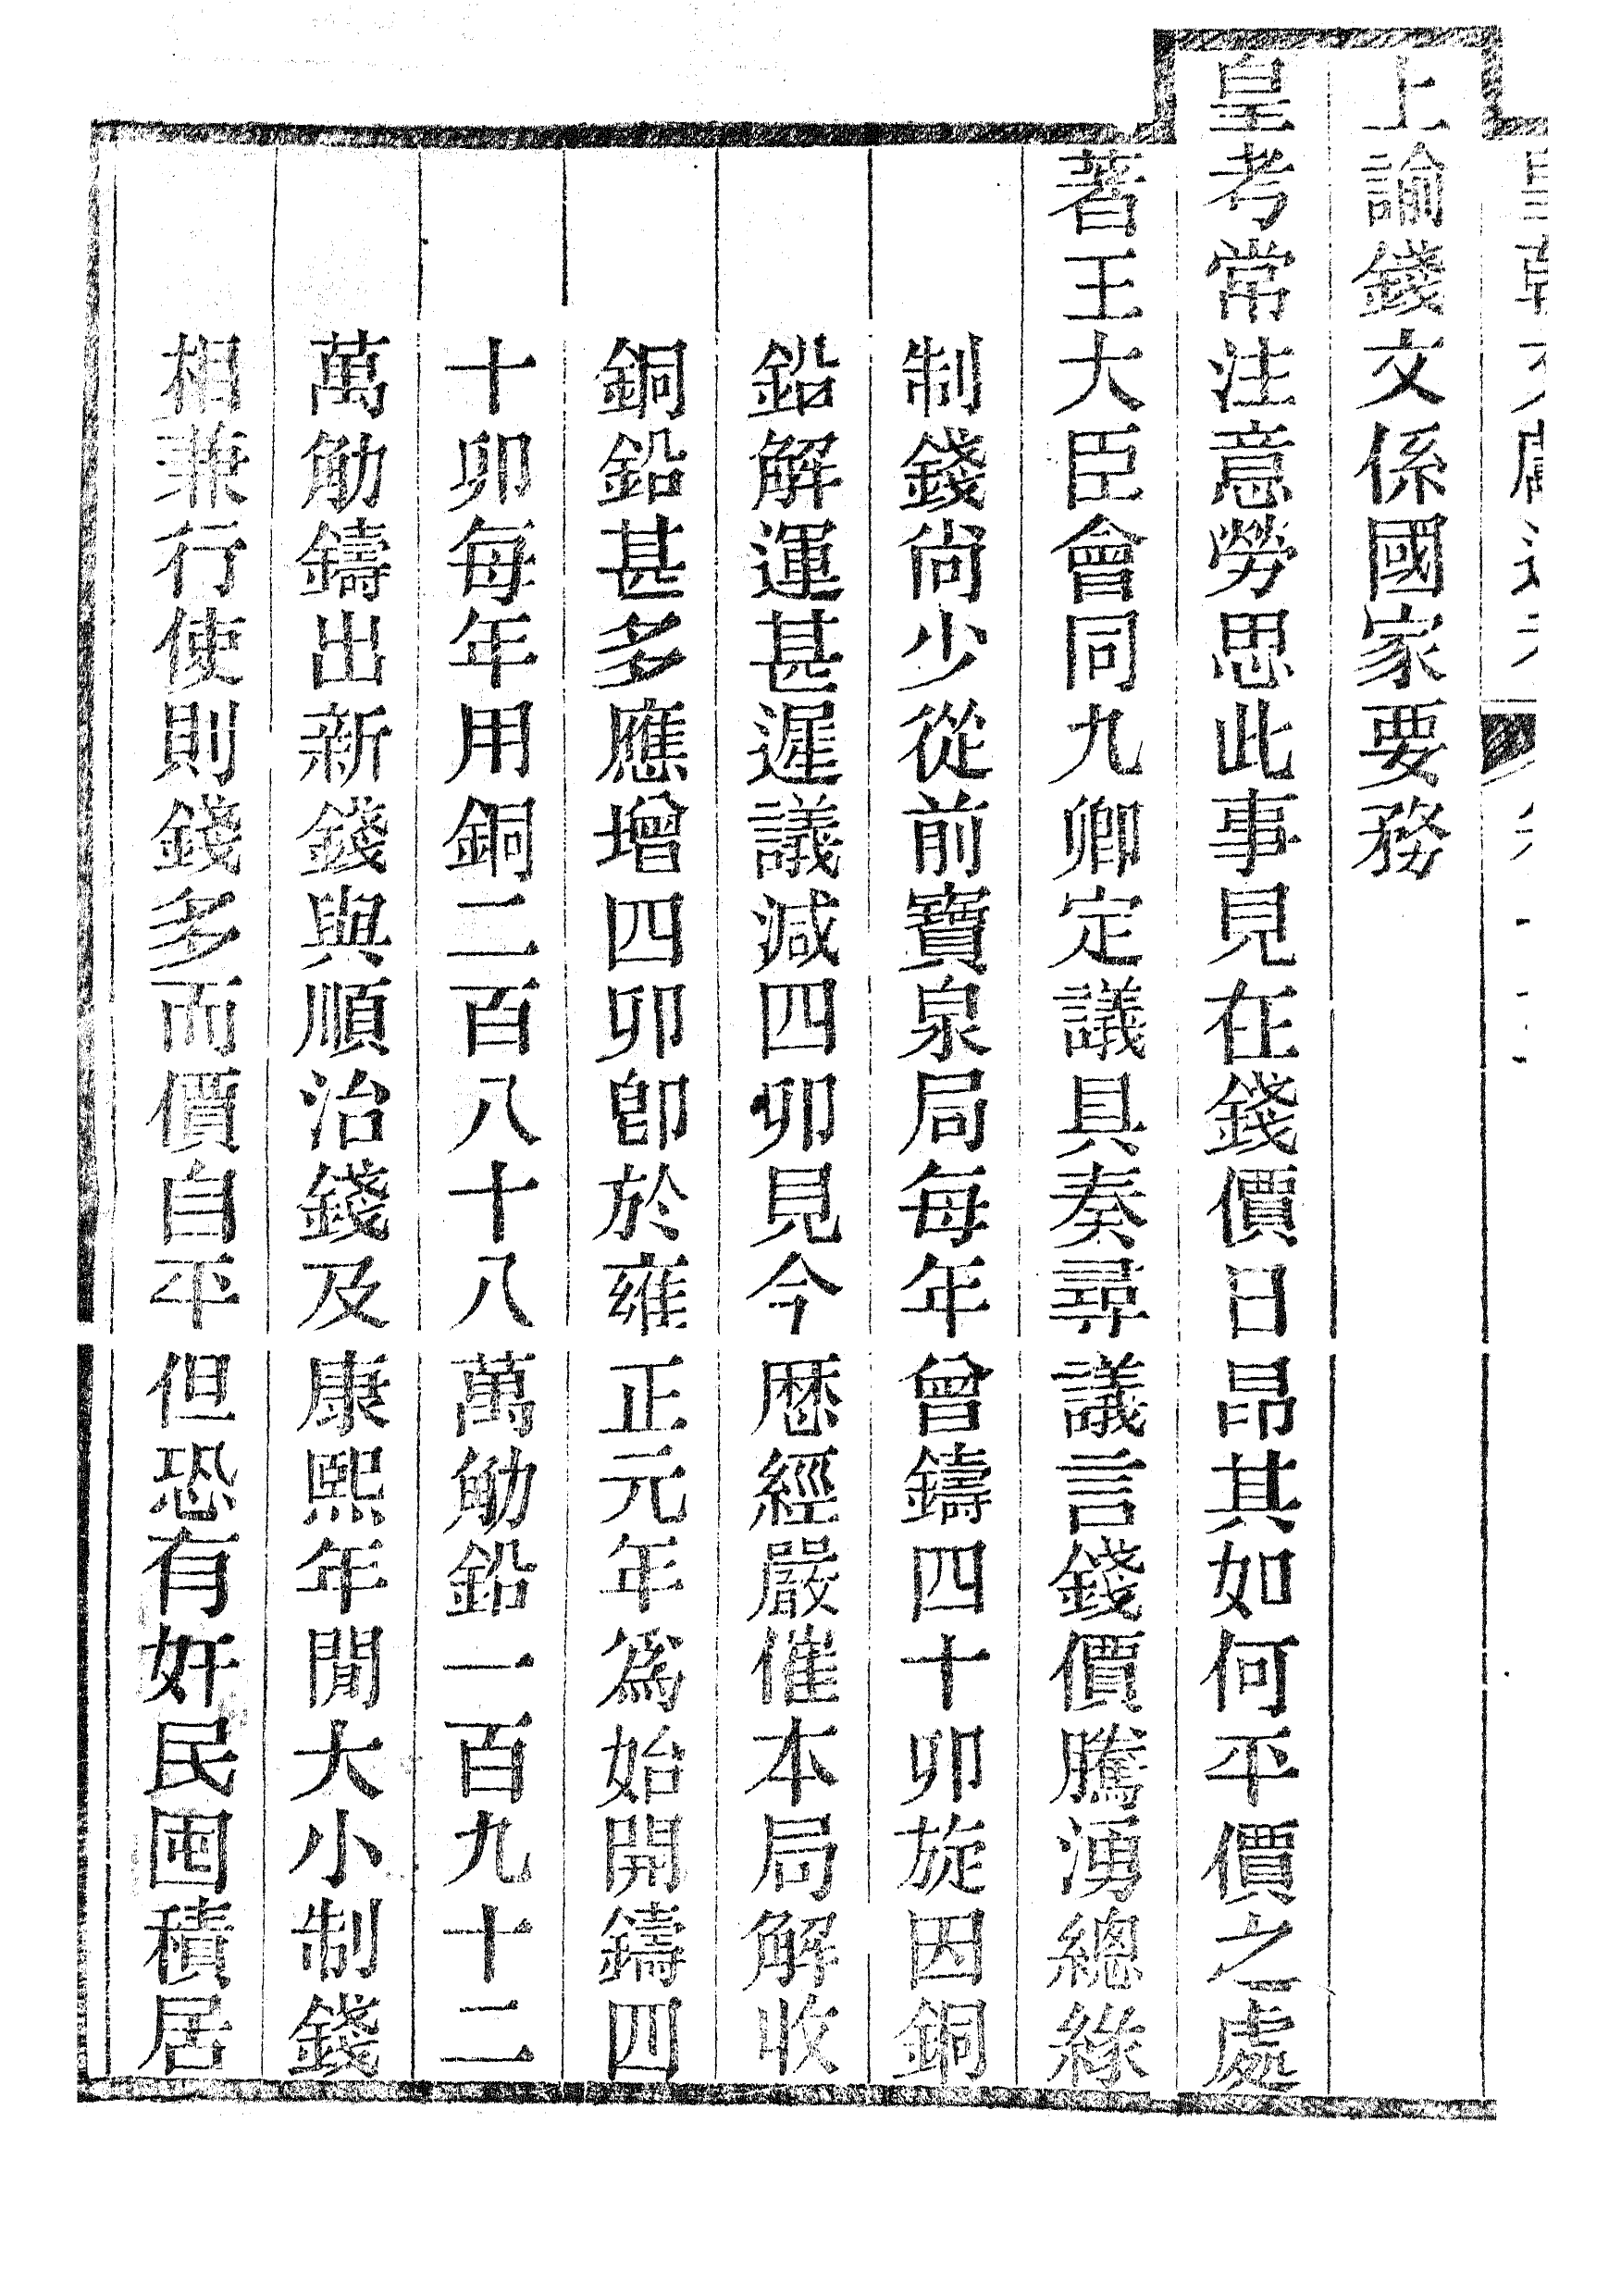 上諭錢文係國家要務
皇考常注意勞思此事見在錢價日昂其如何平價之處
著王大臣會同九卿定議具奏尋議言錢價騰湧總緣
制錢尙少從前寶泉局每年曾鑄四十卯旋因銅
鉛解運甚遲議減四卯見今歴經嚴催本局解收
銅鉛甚多應增四卯卽於雍正元年爲始開鑄四
十卯每年用銅二百八十八萬觔鉛一百九十二
萬觔鑄出新錢與順治錢及康熙年閒大小制錢
相兼行使則錢多而價自平但恐有奸民囤積居